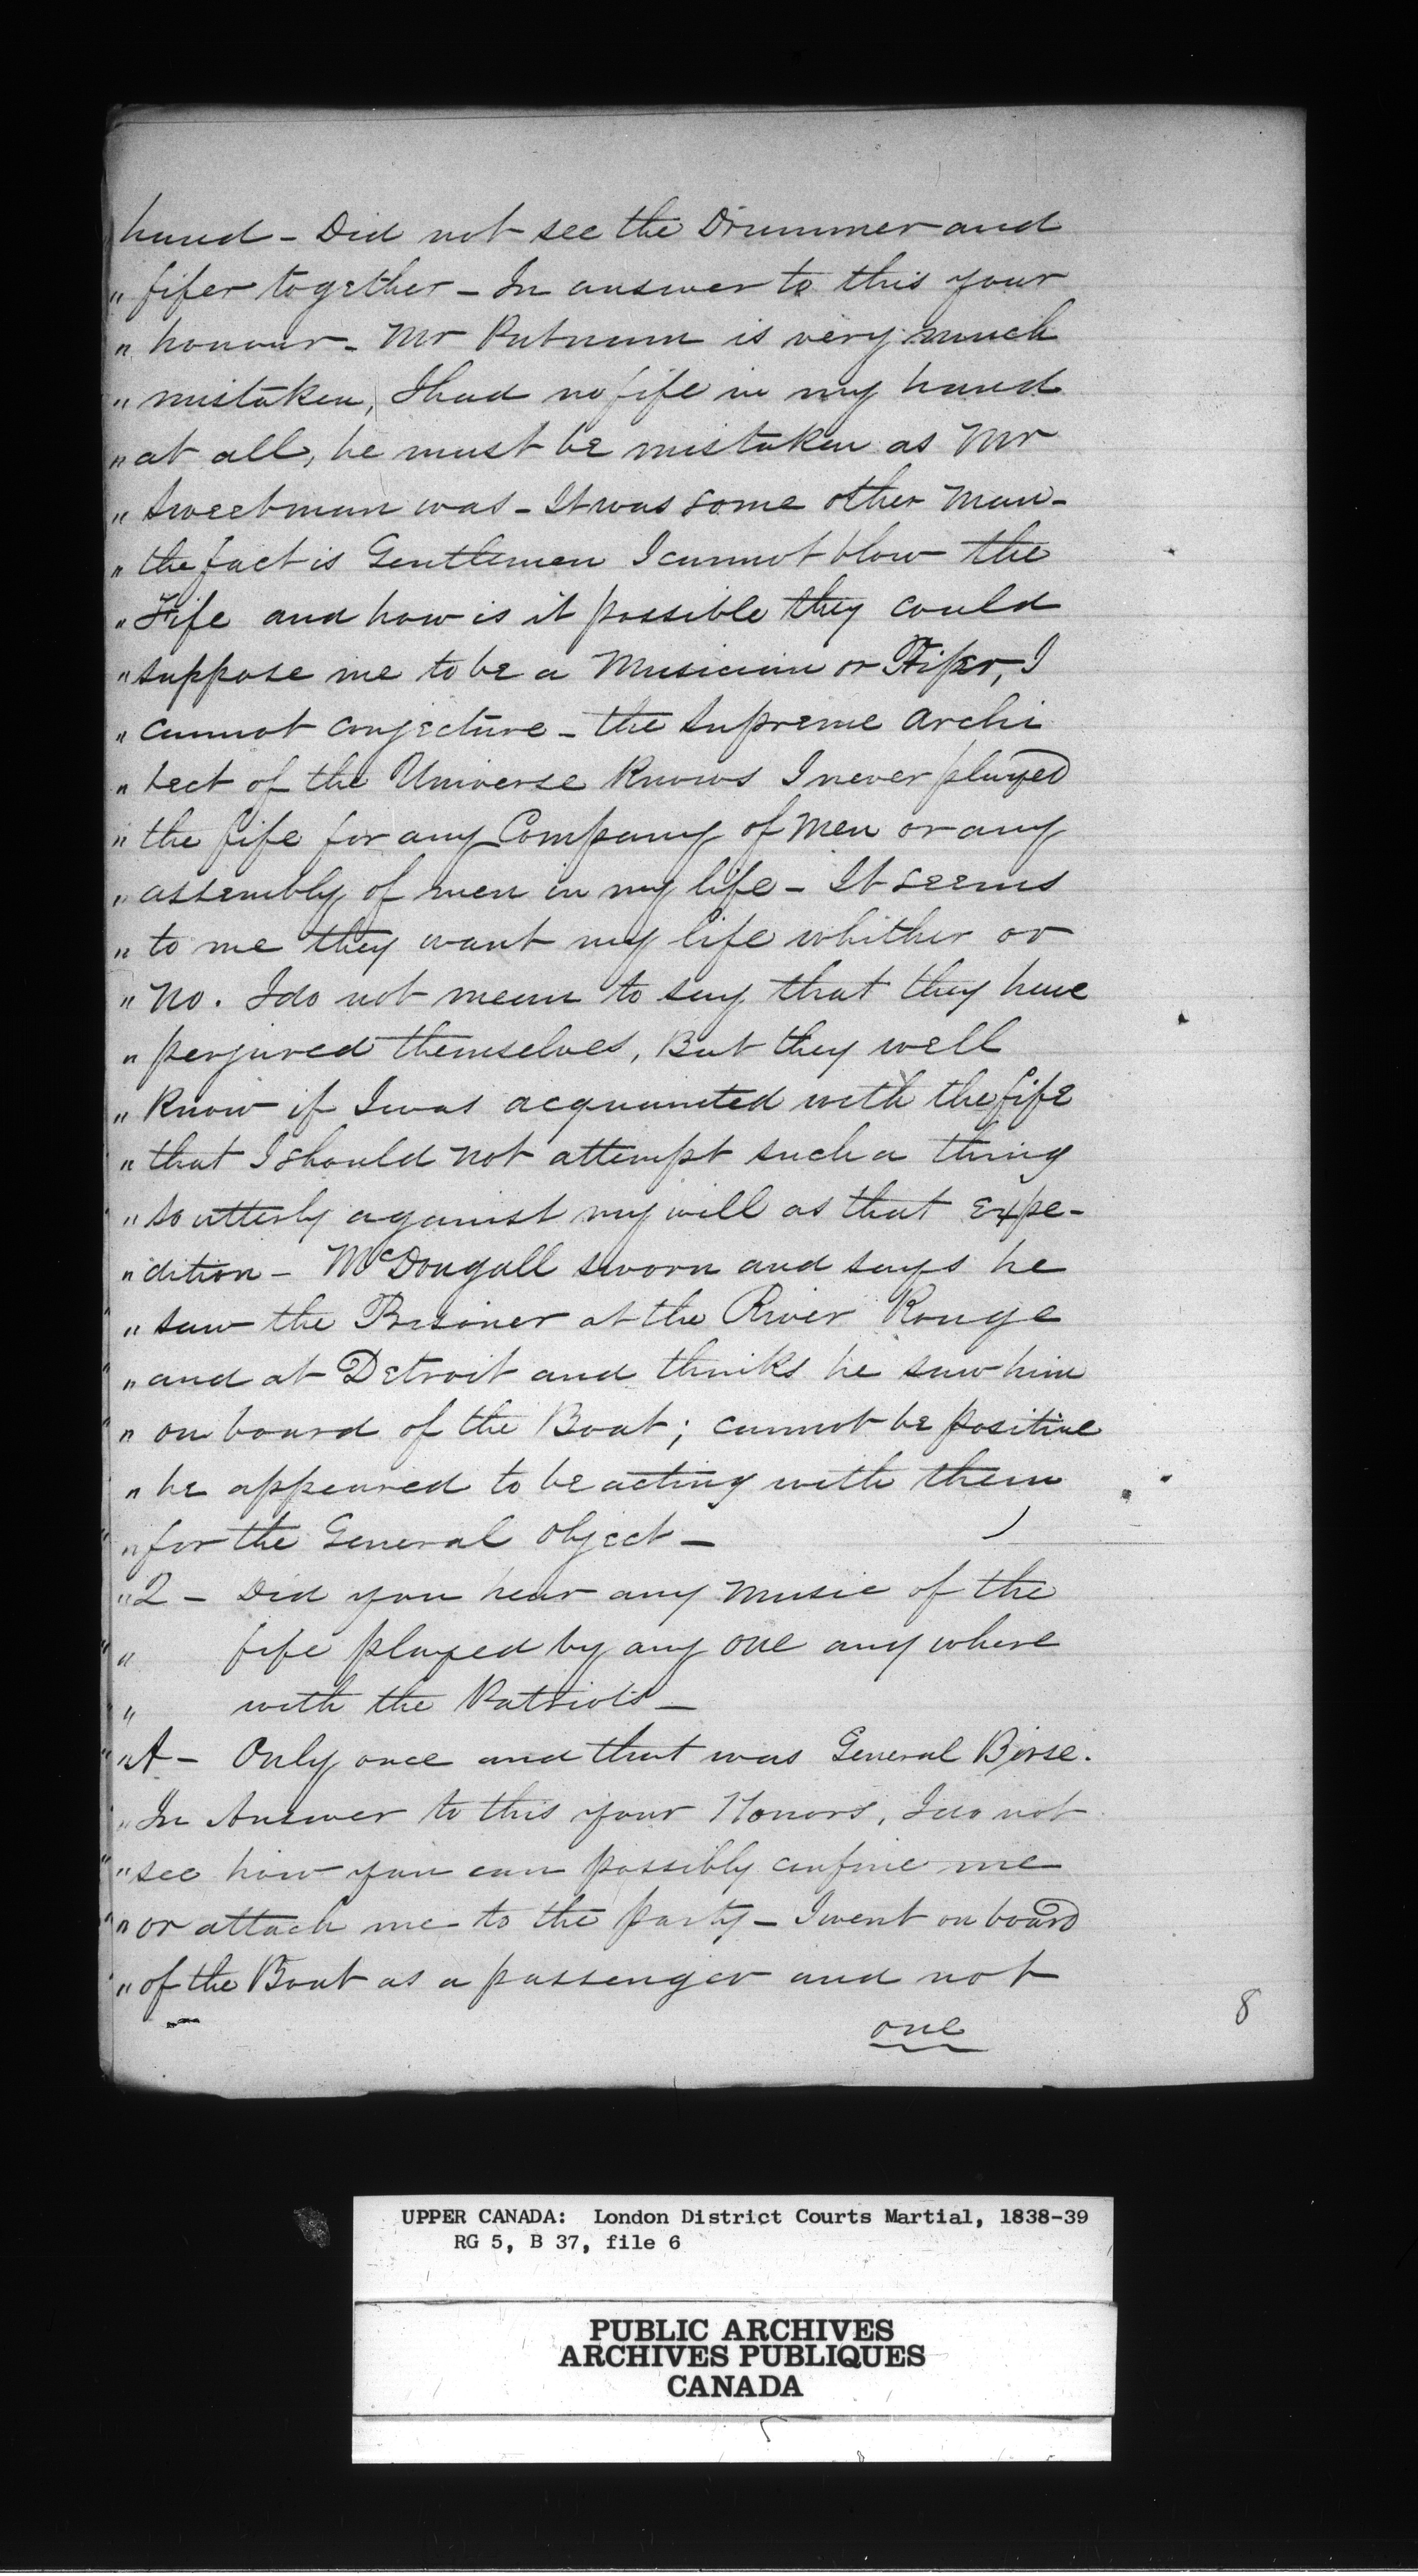 hand - Did not see the Drummer and
" fifer together - In answer to this your
" honour - Mr Putnum is very much
" mistaken, I had no fife in my hand
" at all, he must be mistaken as Mr
" Sweetman was - It was some other man -
" the fact is Gentlemen I cannot blow the
" Fife and how is it possible they could
" suppose me to be a Musician or Fifer, I
" cannot conjecture - the Supreme Archi
" tect of the Universe knows I never played
" the fife for any Company of Men or any
" assembly of men in my life - It seems
" to me they want my life whither or
" no. I do not mean to say that they have
" perjured themselves, But they well
" know if I was acquainted with the fife
" that I should not attempt such a thing
" so utterly against my will as that Expe-
" dition - McDougall sworn and says he
" saw the Prisoner at the River Rouge
" and at Detroit and thinks he saw him
" on board of the Boat; cannot be positive
" he appeared to be acting with them
" for the General Object -
" Q - Did you hear any music of the
" fife played by any one any where
" with the Patriots -
" A - Only once and that was General Birse.
" In Answer to this your Honors, I do not
" see how you can possibly confine me
" or attach me to the party - I went on board
" of the Boat as a passenger and not
one
8
UPPER CANADA: London District Courts Martial, 1838-39
RG 5, B 37, file 6
PUBLIC ARCHIVES
ARCHIVES PUBLIQUES
CANADA